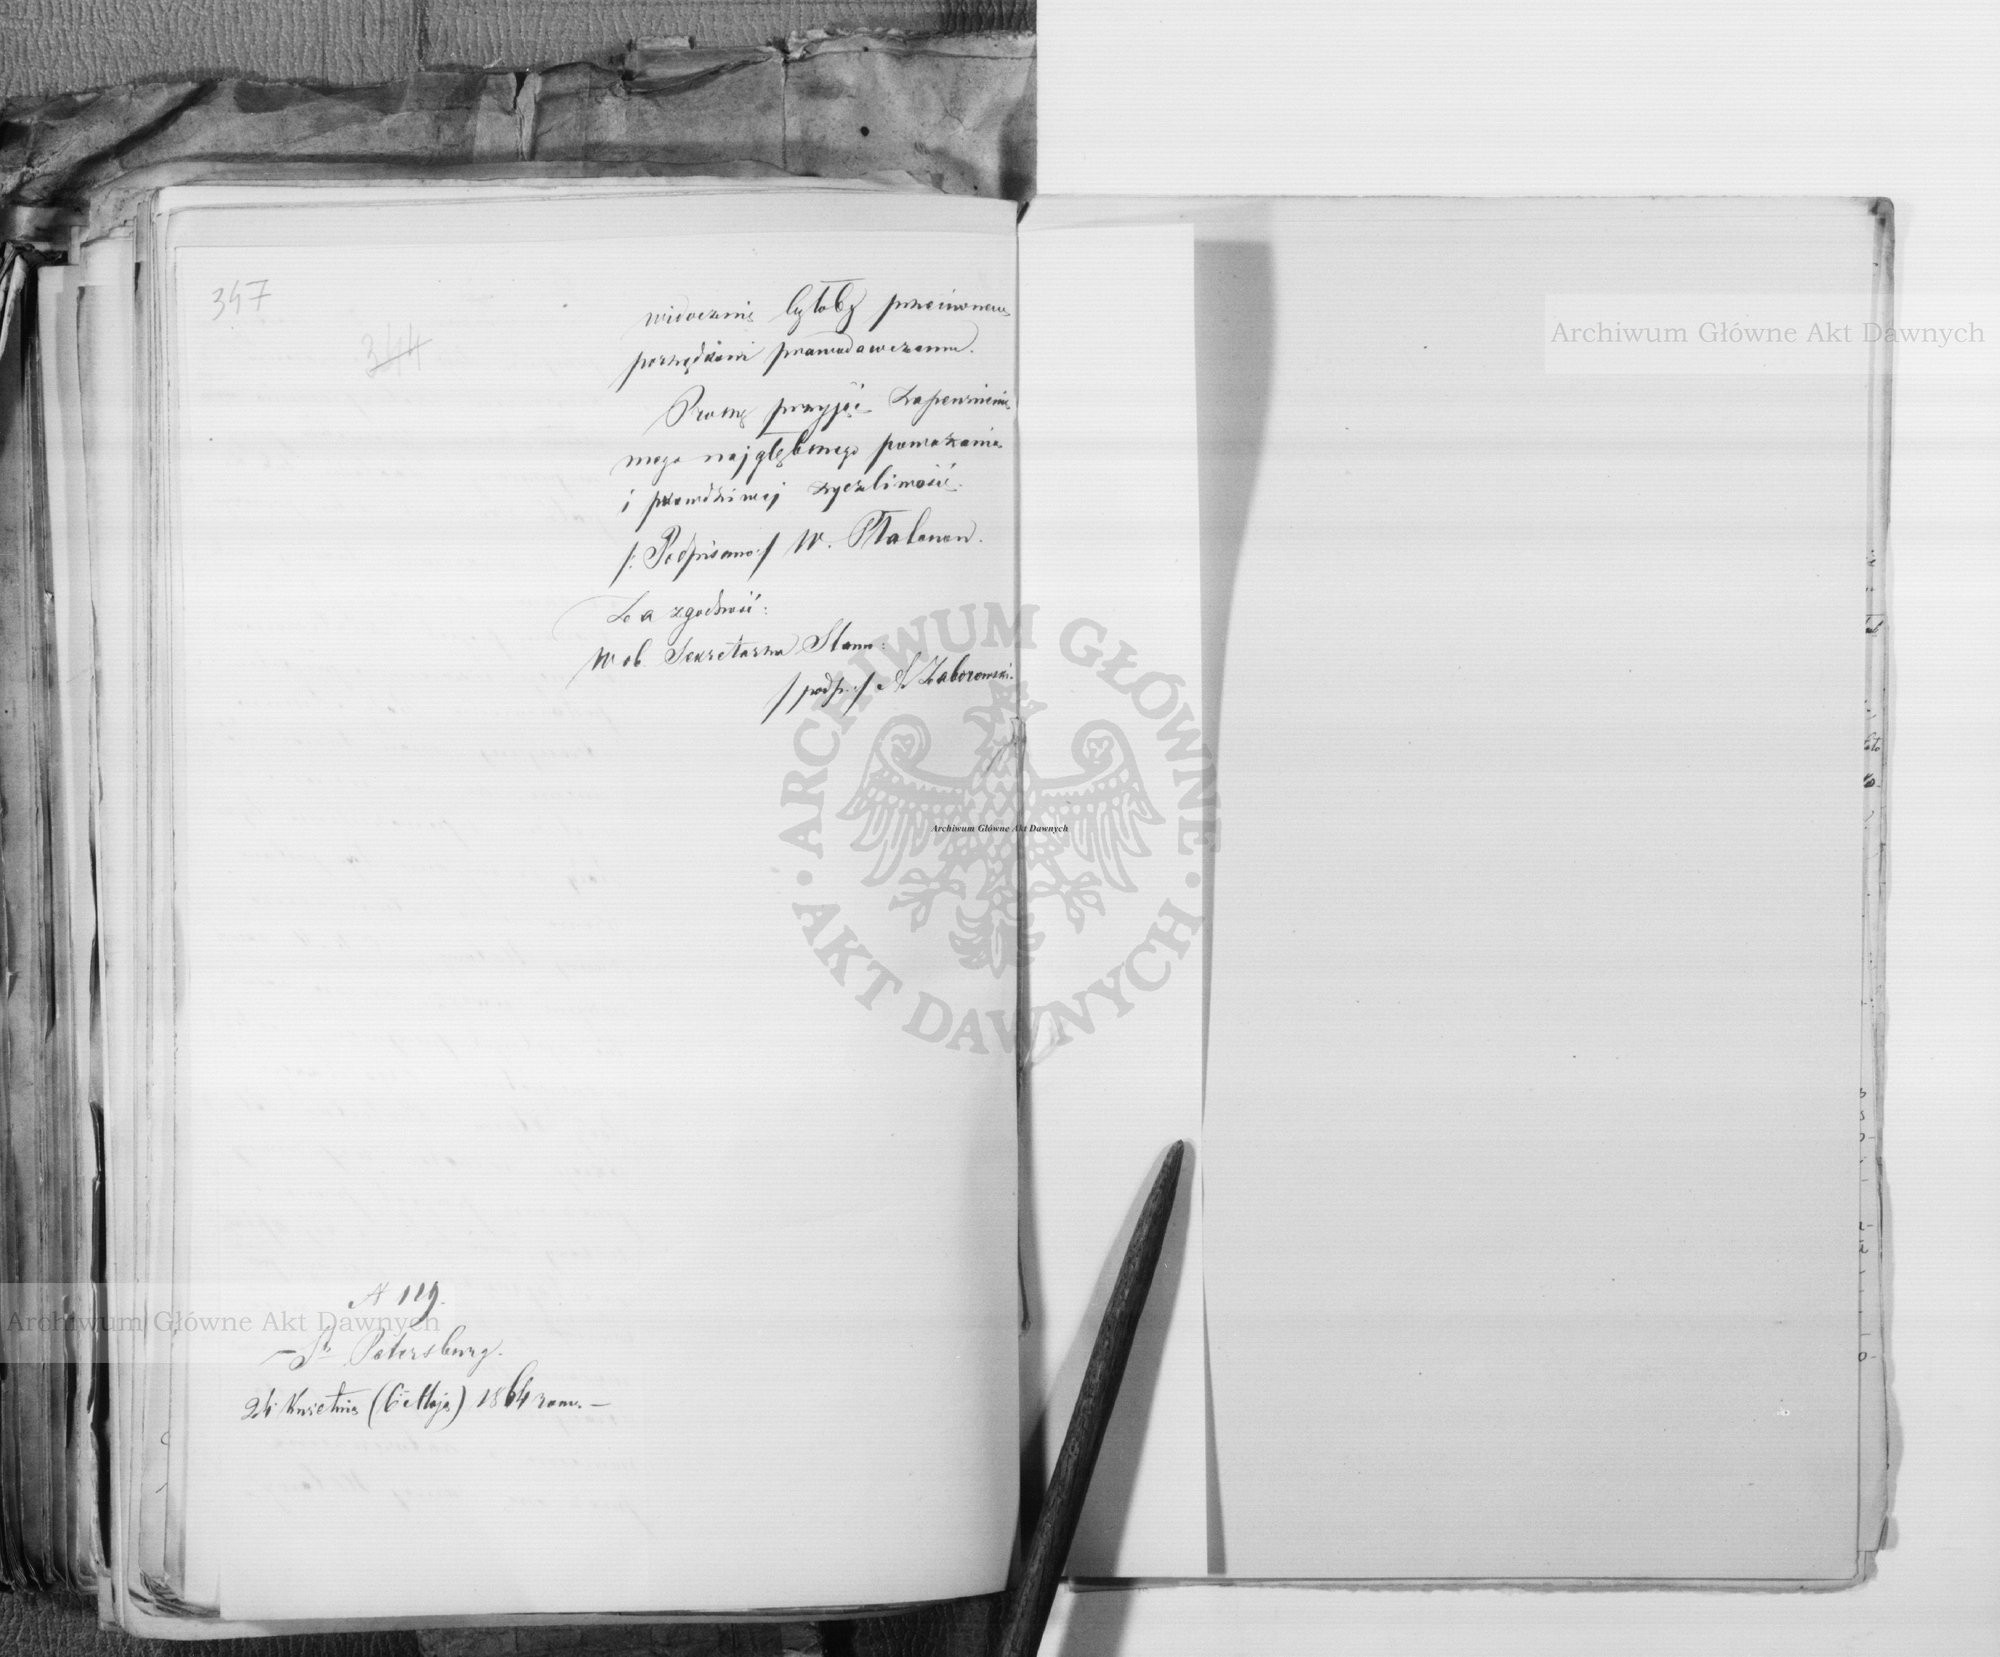 347
344
widocznie byłoby przeciwnem
porządkowi prawodawczemu.
Proszę przyjąć zapewnienie
mego najgłębszego poważania
i prawdziwej życzliwości.
/: Podpisano :/ W. Płatonow.
Za zgodność:
W ob. Sekretarza Stanu:
/ podp. / A Zaborowski.
N 119.
St Petersburg.
24 Kwietnia (6 Maja) 1864 roku. —
Archiwum Główne Akt Dawnych
Archiwum Główne Akt Dawnych
Archiwum Główne Akt Dawnych
ARCHIWUM GŁÓWNE AKT DAWNYCH